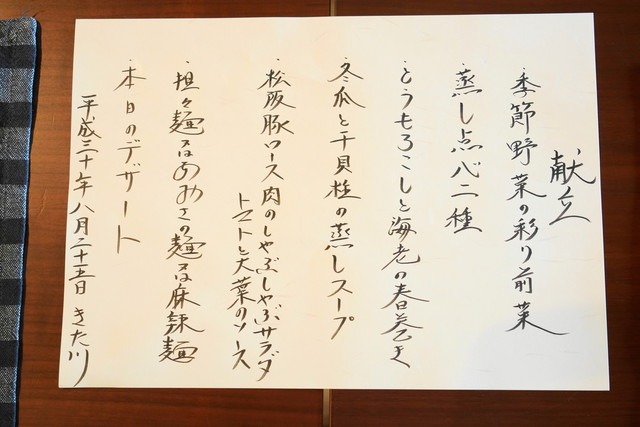 献立
季節野菜の彩り前菜
・蒸し点心二種
・とうもろこしと海老の春巻き
・冬瓜と干貝柱の蒸しスープ
・松阪豚ロース肉のしゃぶしゃぶサラダ
トマトと大葉のソース
・担々麺又はあみさの麺又は麻辣麺
・本日のデザート
平成三十年八月二十五日 きた川